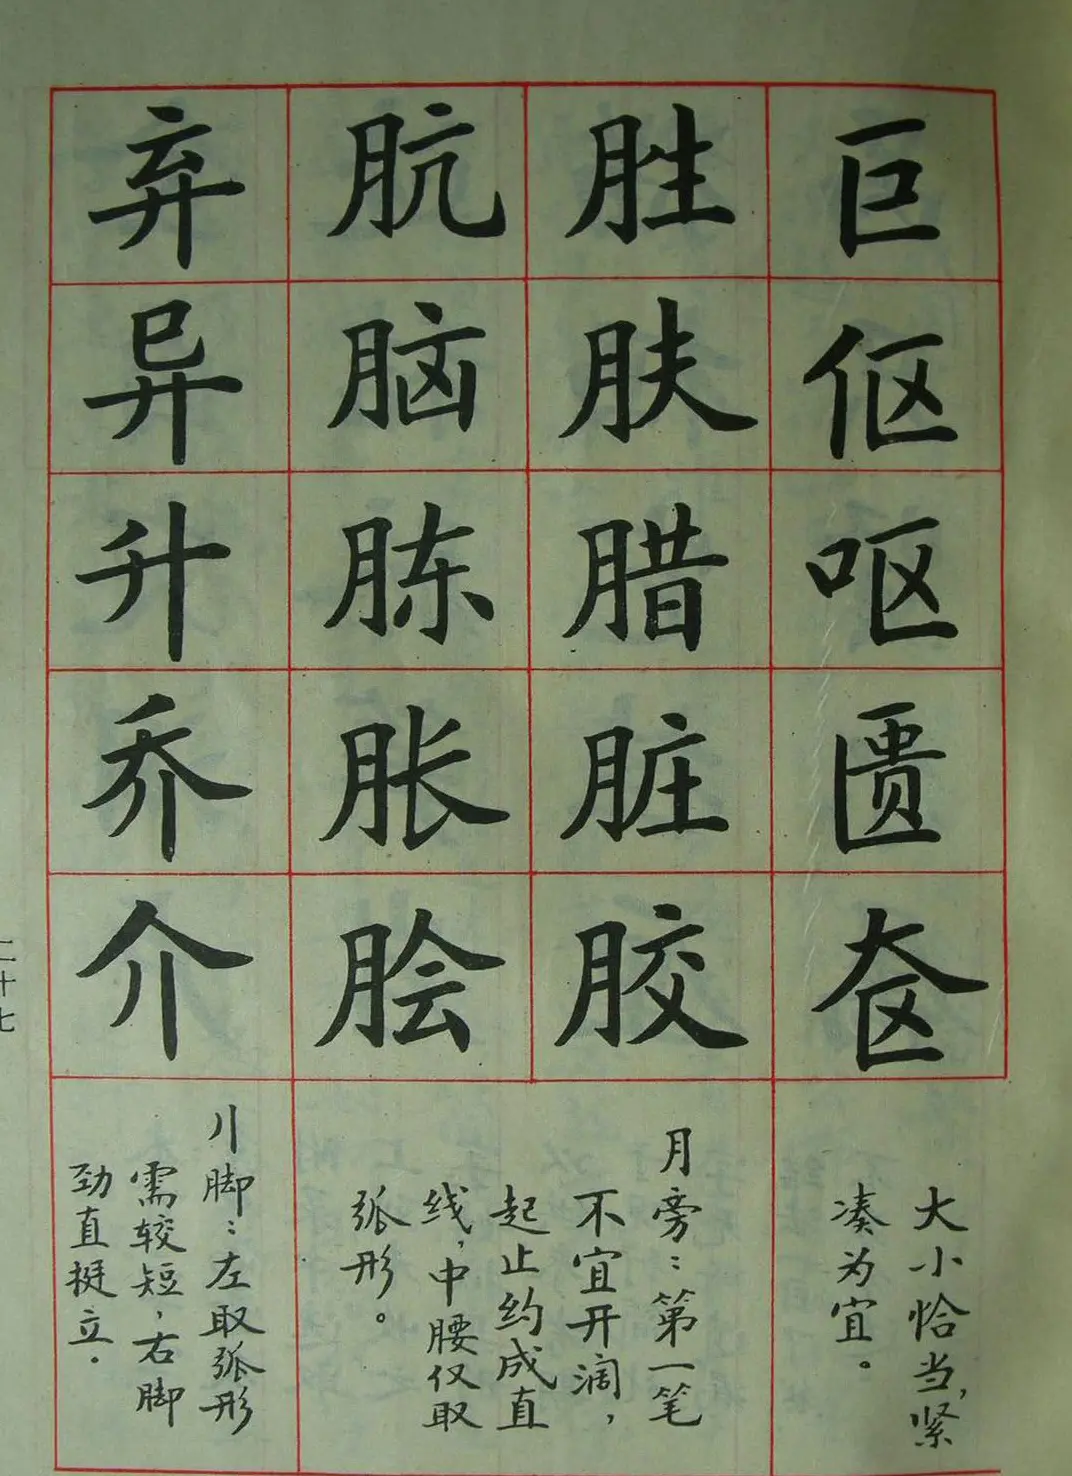 巨伛呕匮奁
大小恰当,紧
凑为宜。
胜肤腊脏胶
肮脑胨胀脍
月旁:第一笔
不宜开阔,
起止约成直
线,中腰仅取
弧形。
弃异升乔介
丿丨脚:左取弧形
需较短,右脚
劲直挺立.
二十七